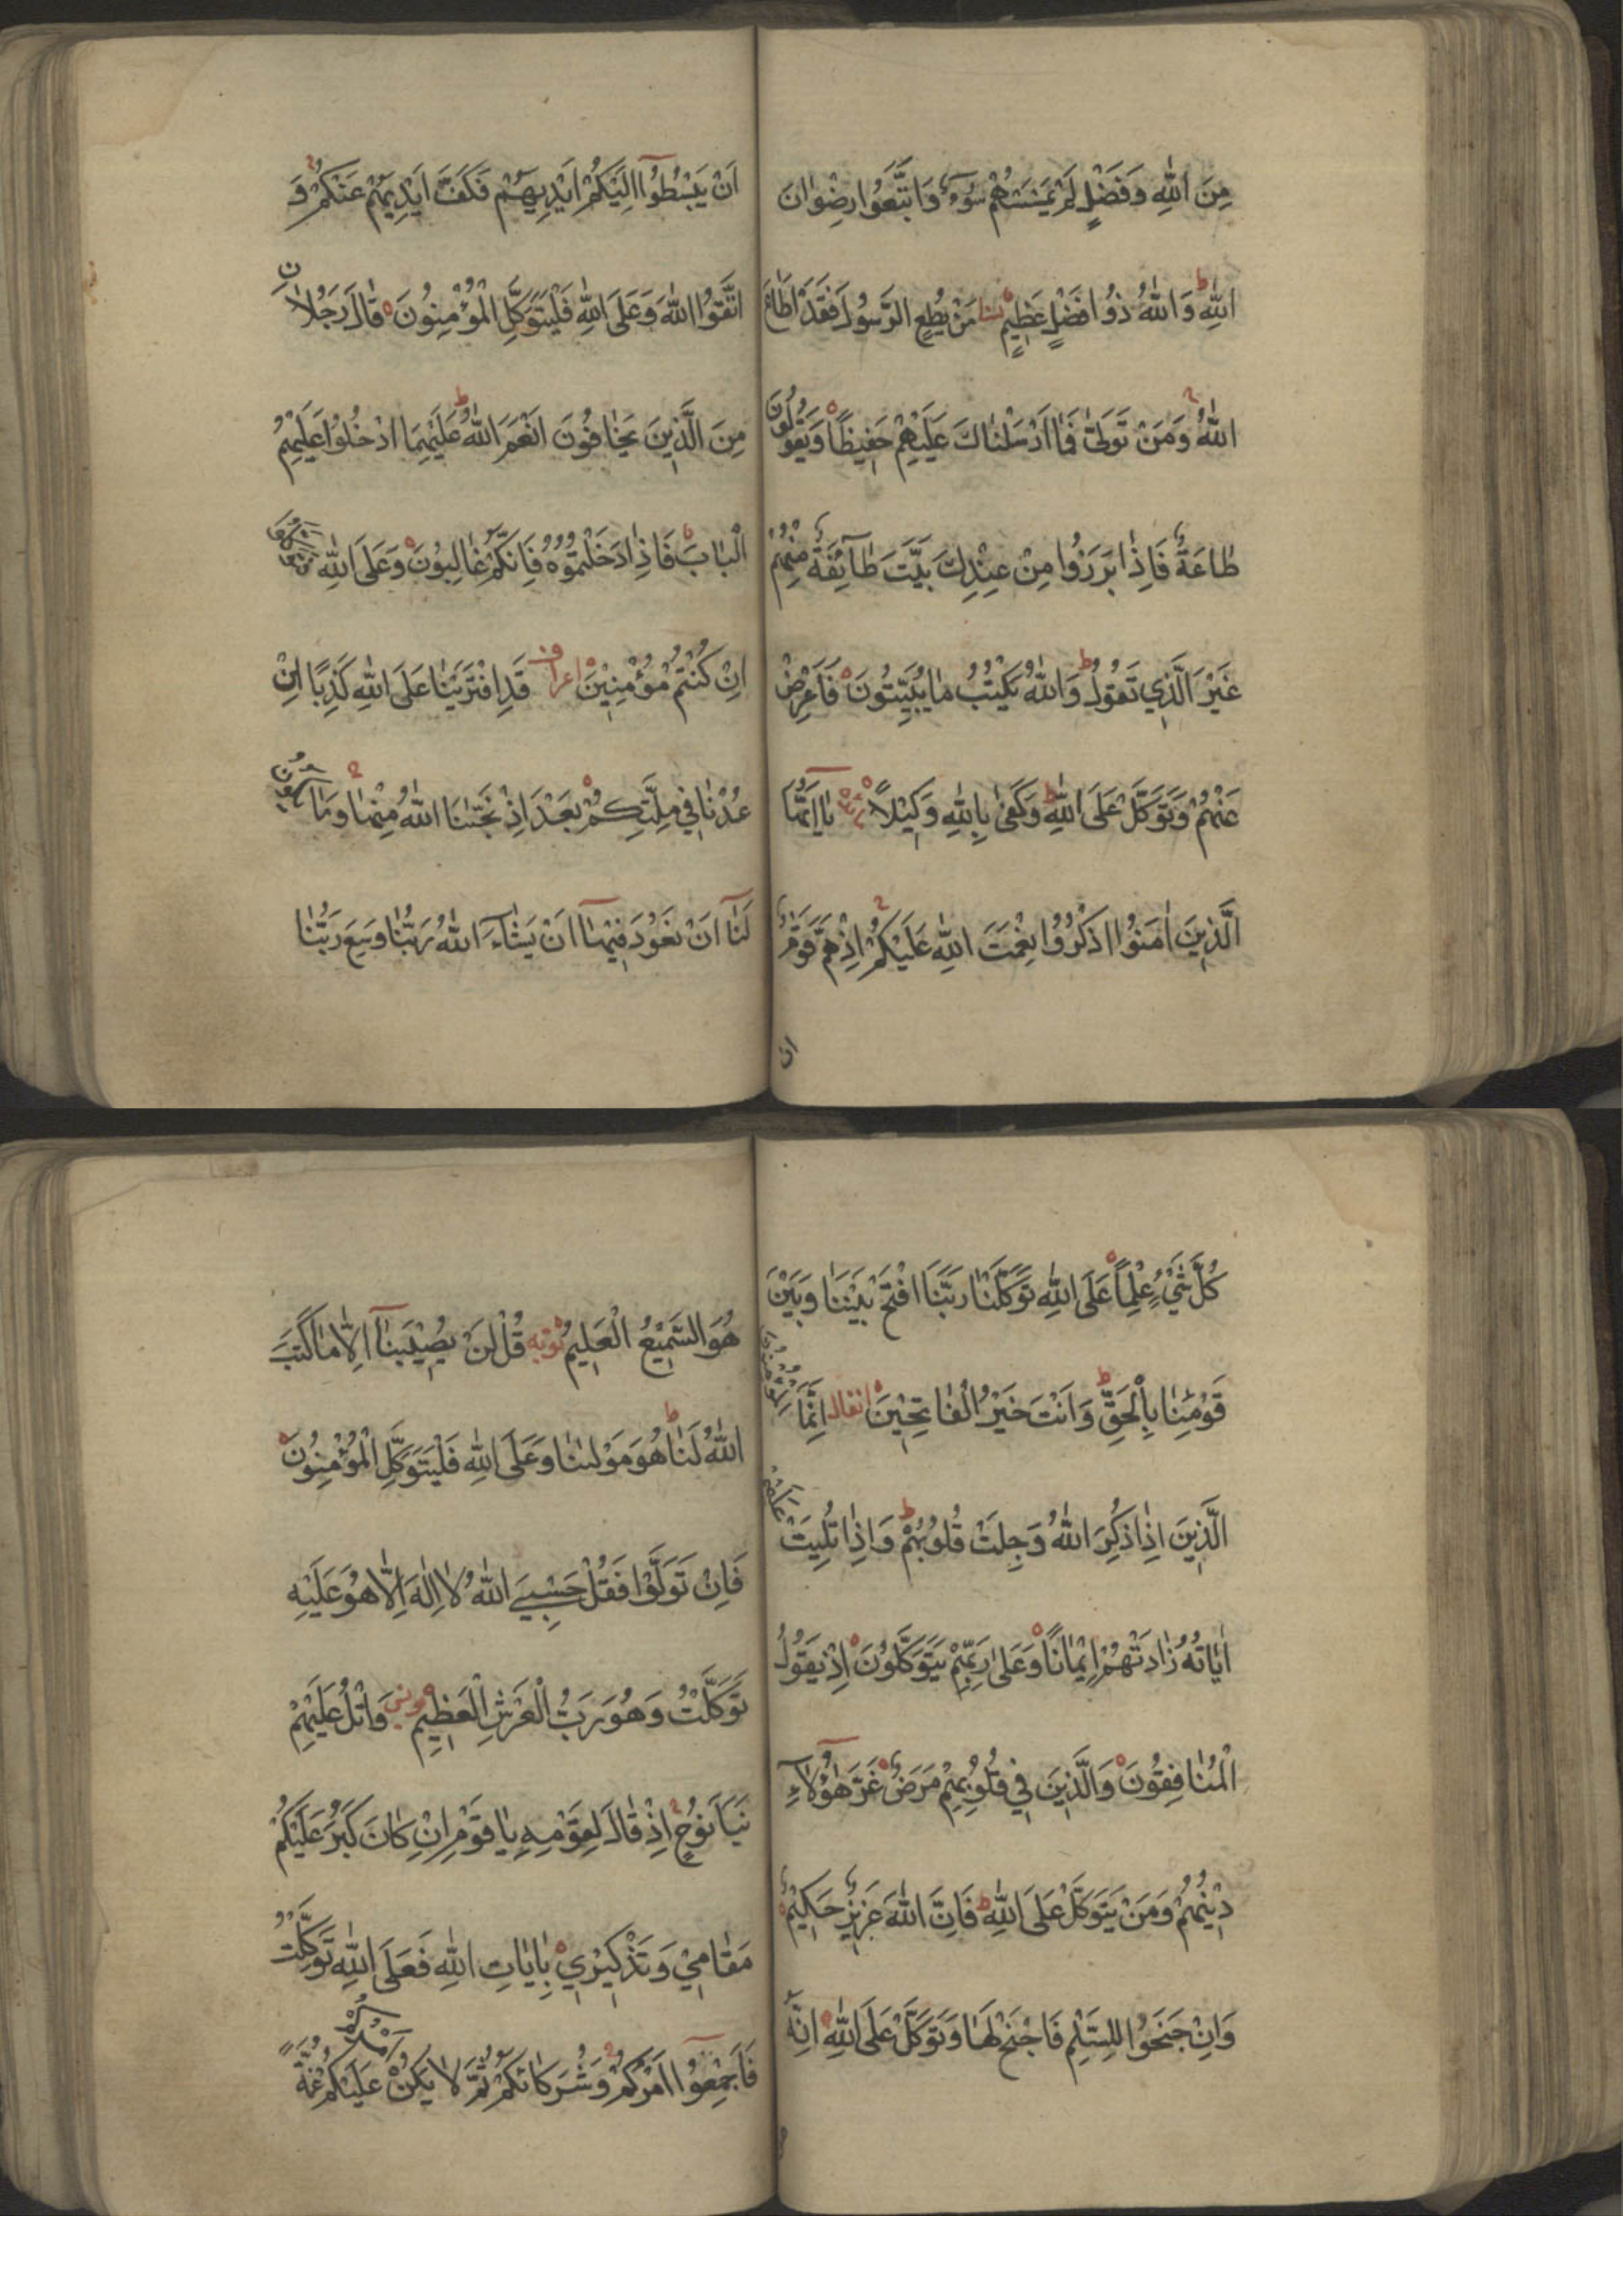 مِنَ اللّٰهِ وَفَضْلٍ لَمْ يَمْسَسْهُمْ سُوءٌ وَاتَّبَعُوا رِضْوٰانَ
اللّٰهِ ط وَاللّٰهُ ذُوا فَضْلٍ عَظِيمٍ نسا مَنْ يُطِعِ الرَّسُولَ فَقَدْ اَطٰاعَ
اللّٰهَ وَمَنْ تَوَلّٰى فَمٰا اَرْسَلْنٰاكَ عَلَيْهِمْ حَفِيظًا وَيَقُولُونَ
طٰاعَةٌ فَاِذٰا بَرَزُوا مِنْ عِنْدِكَ بَيَّتَ طٰآئِفَةٌ مِنْهُمْ
غَيْرَ الَّذِي تَقُولُ ط وَاللّٰهُ يَكْتُبُ مٰا يُبَيِّتُونَ فَاَعْرِضْ
عَنْهُمْ وَتَوَكَّلْ عَلَى اللّٰهِ ط وَكَفٰى بِاللّٰهِ وَكِيْلًا يٰا اَيُّهَا
الَّذِينَ اٰمَنُوا اذْكُرُوا نِعْمَتَ اللّٰهِ عَلَيْكُمْ اِذْ هَمَّ قَوْمٌ
ان
اَنْ يَبْسُطُوٓا اِلَيْكُمْ اَيْدِيَهُمْ فَكَفَّ اَيْدِيَهُمْ عَنْكُمْ وَ
اتَّقُوا اللّٰهَ وَعَلَى اللّٰهِ فَلْيَتَوَكَّلِ الْمُؤْمِنُونَ قٰالَ رَجُلٰانِ
مِنَ الَّذِينَ يَخٰافُونَ اَنْعَمَ اللّٰهُ ط عَلَيْهِمَا ادْخُلُوا عَلَيْهِمُ
الْبٰابَ فَاِذٰا دَخَلْتُمُوهُ فَاِنَّكُمْ غٰالِبُونَ وَعَلَى اللّٰهِ فَتَوَكَّلُوا
اِنْ كُنْتُمْ مُؤْمِنِيْنَ اعراف قَدِ افْتَرَيْنٰا عَلَى اللّٰهِ كَذِبًا اِنْ
عُدْنٰا فِي مِلَّتِكُمْ بَعْدَ اِذْ نَجّٰىنَا اللّٰهُ مِنْهٰا وَمٰا يَكُونُ
لَنٰآ اَنْ نَعُوْدَ فِيْهٰآ اَنْ يَشٰاءَ اللّٰهُ رَبُّنٰا وَسِعَ رَبُّنٰا
كُلَّ شَيْءٍ عِلْمًا عَلَى اللّٰهِ تَوَكَّلْنٰا رَبَّنَا افْتَحْ بَيْنَنٰا وَبَيْنَ
قَوْمِنٰا بِالْحَقِّ ط وَاَنْتَ خَيْرُ الْفٰاتِحِيْنَ انفال اِنَّمَا الْمُؤْمِنُونَ
الَّذِينَ اِذٰا ذُكِرَ اللّٰهُ وَجِلَتْ قُلُوبُهُمْ ط وَاِذٰا تُلِيَتْ عَلَيْهِمْ
اٰيٰاتُهُ زٰادَتْهُمْ اِيْمٰانًا وَعَلٰى رَبِّهِمْ يَتَوَكَّلُونَ اِذْ يَقُولُ
الْمُنٰافِقُونَ وَالَّذِينَ فِي قُلُوبِهِمْ مَرَضٌ غَرَّ هٰٓؤُلٰٓاءِ
دِيْنُهُمْ وَمَنْ يَتَوَكَّلْ عَلَى اللّٰهِ ط فَاِنَّ اللّٰهَ عَزِيزٌ حَكِيْمٌ
وَاِنْ جَنَحُوا لِلسَّلْمِ فَاجْنَحْ لَهٰا وَتَوَكَّلْ عَلَى اللّٰهِ اِنَّهُ
هُوَ السَّمِيْعُ الْعَلِيمُ توبه قُلْ لَنْ يُصِيْبَنٰآ اِلّٰا مٰا كَتَبَ
اللّٰهُ لَنٰا ط هُوَ مَوْلٰىنٰا وَعَلَى اللّٰهِ فَلْيَتَوَكَّلِ الْمُؤْمِنُونَ
فَاِنْ تَوَلَّوْا فَقُلْ حَسْبِيَ اللّٰهُ لٰا اِلٰهَ اِلّٰا هُوَ عَلَيْهِ
تَوَكَّلْتُ وَهُوَ رَبُّ الْعَرْشِ الْعَظِيمِ يونس وَاتْلُ عَلَيْهِمْ
نَبَاَ نُوحٍ اِذْ قٰالَ لِقَوْمِهِ يٰا قَوْمِ اِنْ كٰانَ كَبُرَ عَلَيْكُمْ
مَقٰامِيْ وَتَذْكِيْرِيْ بِاٰيٰاتِ اللّٰهِ فَعَلَى اللّٰهِ تَوَكَّلْتُ
فَاَجْمِعُوٓا اَمْرَكُمْ وَشُرَكٰائَكُمْ ثُمَّ لٰا يَكُنْ اَمْرُكُمْ عَلَيْكُمْ غُمَّةً